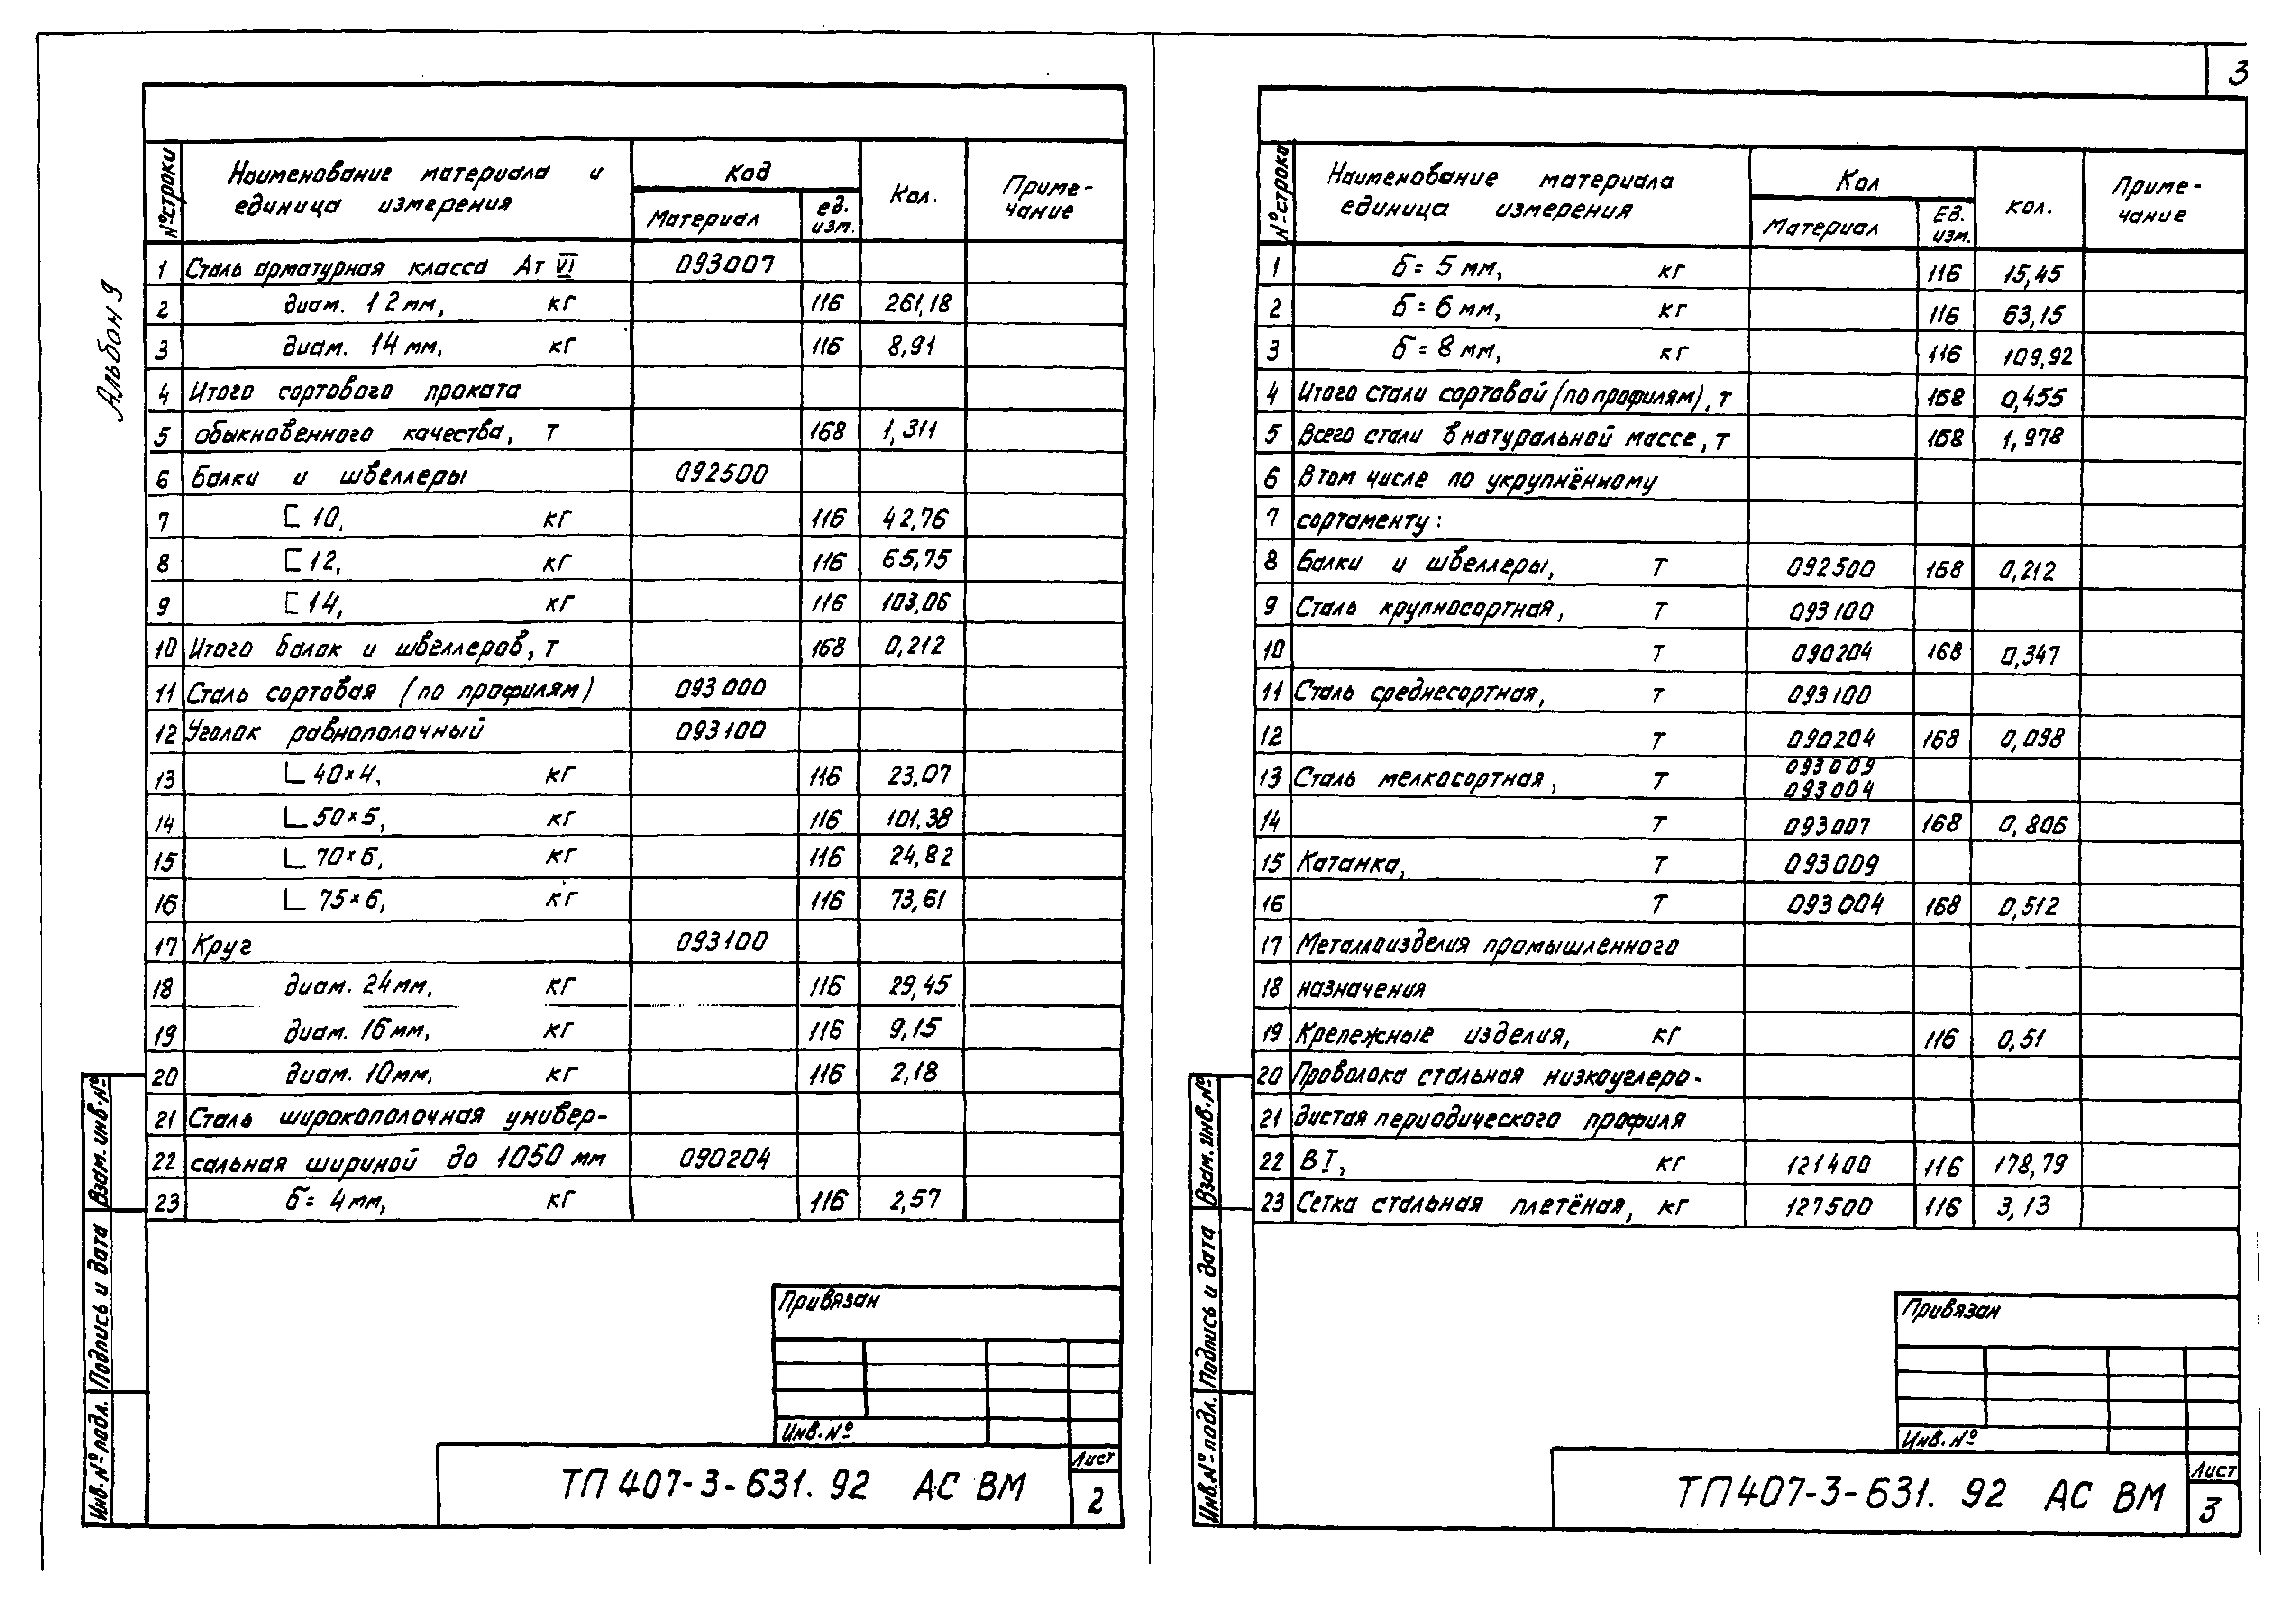 3
Альбом 9
№ строки | Наименование материала и единица измерения | Код | Кол. | Приме-чание
Материал | ед. изм.
1 Сталь арматурная класса Ат VI 093007
2 диам. 12 мм, кг 116 261,18
3 диам. 14 мм, кг 116 8,91
4 Итого сортового проката
5 обыкновенного качества, т 168 1,311
6 Балки и швеллеры 092500
7 [ 10, кг 116 42,76
8 [ 12, кг 116 65,75
9 [ 14, кг 116 103,06
10 Итого балок и швеллеров, т 168 0,212
11 Сталь сортовая (по профилям) 093000
12 Уголок равнополочный 093100
13 ∟ 40×4, кг 116 23,07
14 ∟ 50×5, кг 116 101,38
15 ∟ 70×6, кг 116 24,82
16 ∟ 75×6, кг 116 73,61
17 Круг 093100
18 диам. 24мм, кг 116 29,45
19 диам. 16мм, кг 116 9,15
20 диам. 10мм, кг 116 2,18
21 Сталь широкополочная универ-
22 сальная шириной до 1050 мм 090204
23 б= 4мм, кг 116 2,57
Привязан
Инв. №
ТП 407-3-631. 92 АС ВМ
Лист
2
Взам. инв. №
Подпись и дата
Инв. № подл.
№ строки | Наименование материала единица измерения | Кол | кол. | Приме-чание
Материал | Ед. изм.
1 б= 5 мм, кг 116 15,45
2 б= 6 мм, кг 116 63,15
3 б= 8 мм, кг 116 109,92
4 Итого стали сортовой (по профилям), т 168 0,455
5 Всего стали в натуральной массе, т 168 1,978
6 В том числе по укрупнённому
7 сортаменту:
8 Балки и швеллеры, т 092500 168 0,212
9 Сталь крупносортная, т 093100
10 т 090204 168 0,347
11 Сталь среднесортная, т 093100
12 т 090204 168 0,098
13 Сталь мелкосортная, т 093009 093004
14 т 093007 168 0,806
15 Катанка, т 093009
16 т 093004 168 0,512
17 Металлоизделия промышленного
18 назначения
19 Крепежные изделия, кг 116 0,51
20 Проволока стальная низкоуглеро-
21 дистая периодического профиля
22 В I, кг 121400 116 178,79
23 Сетка стальная плетёная, кг 127500 116 3,13
Привязан
Инв. №
ТП 407-3-631. 92 АС ВМ
Лист
3
Взам. инв. №
Подпись и дата
Инв. № подл.